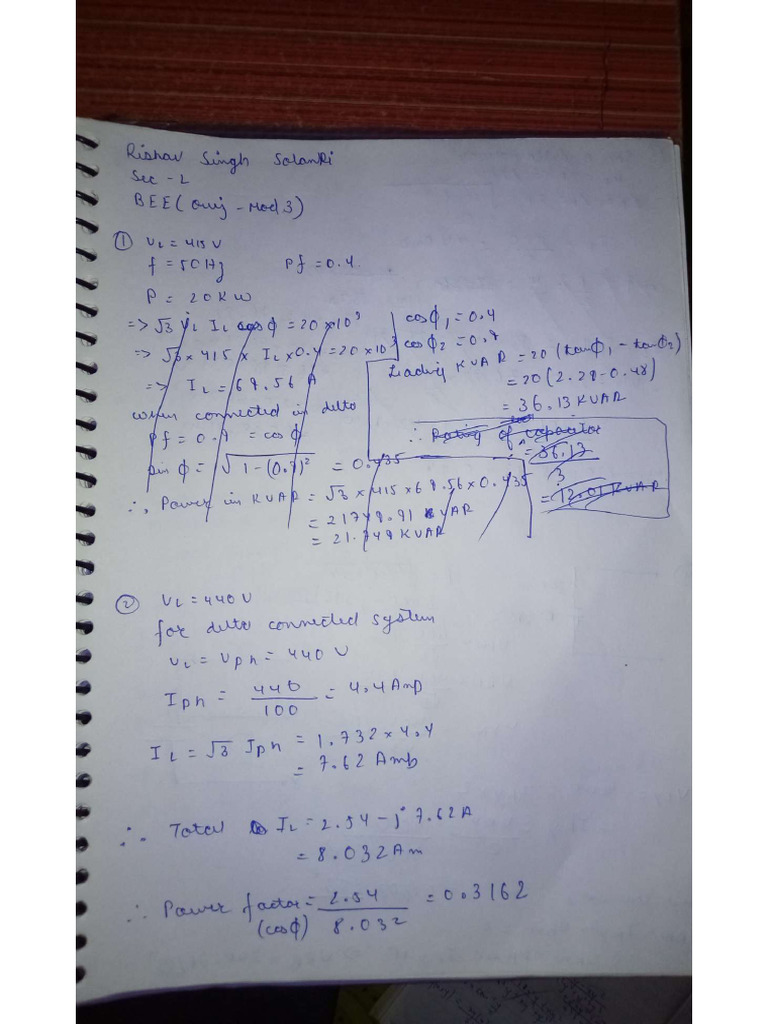 Rishav Singh Solanki
Sec - 2
BEE (Quiz - Mod 3)
① VL = 415 V
f = 50 Hz Pf = 0.4
P = 20 KW
=> √3 VL IL cosϕ = 20 × 10³
=> √3 × 415 × IL × 0.4 = 20 × 10³
=> IL = 69.56 A
when connected in delta
Pf = 0.9 = cosϕ
sin ϕ = √1 - (0.9)² = 0.435
∴ Power in KVAR = √3 × 415 × 69.56 × 0.435
= 21749.91 VAR
= 21.749 KVAR
cosϕ1 = 0.4
cosϕ2 = 0.9
Leading KVAR = 20 (tanϕ1 - tanϕ2)
= 20 (2.29 - 0.48)
= 36.13 KVAR
∴ Rating of capacitor
= 36.13
3
= 12.01 KVAR
② VL = 440 V
for delta connected system
VL = Vph = 440 V
Iph = 440 / 100 = 4.4 Amp
IL = √3 Iph = 1.732 × 4.4
= 7.62 Amp
∴ Total IL = 2.54 - j 7.62 A
= 8.032 Am
∴ Power factor = 2.54 / 8.032 = 0.3162
(cosϕ)